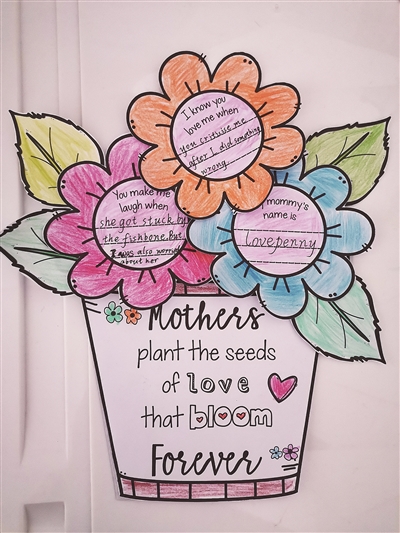 I know you
love me when
you critisise me
after I did something
wrong
You make me
laugh when
she got stuck by
the fishbone. But
I was also worried
about her
My mommy's
name is
lovepenny
Mothers
plant the seeds
of love
that bloom
Forever